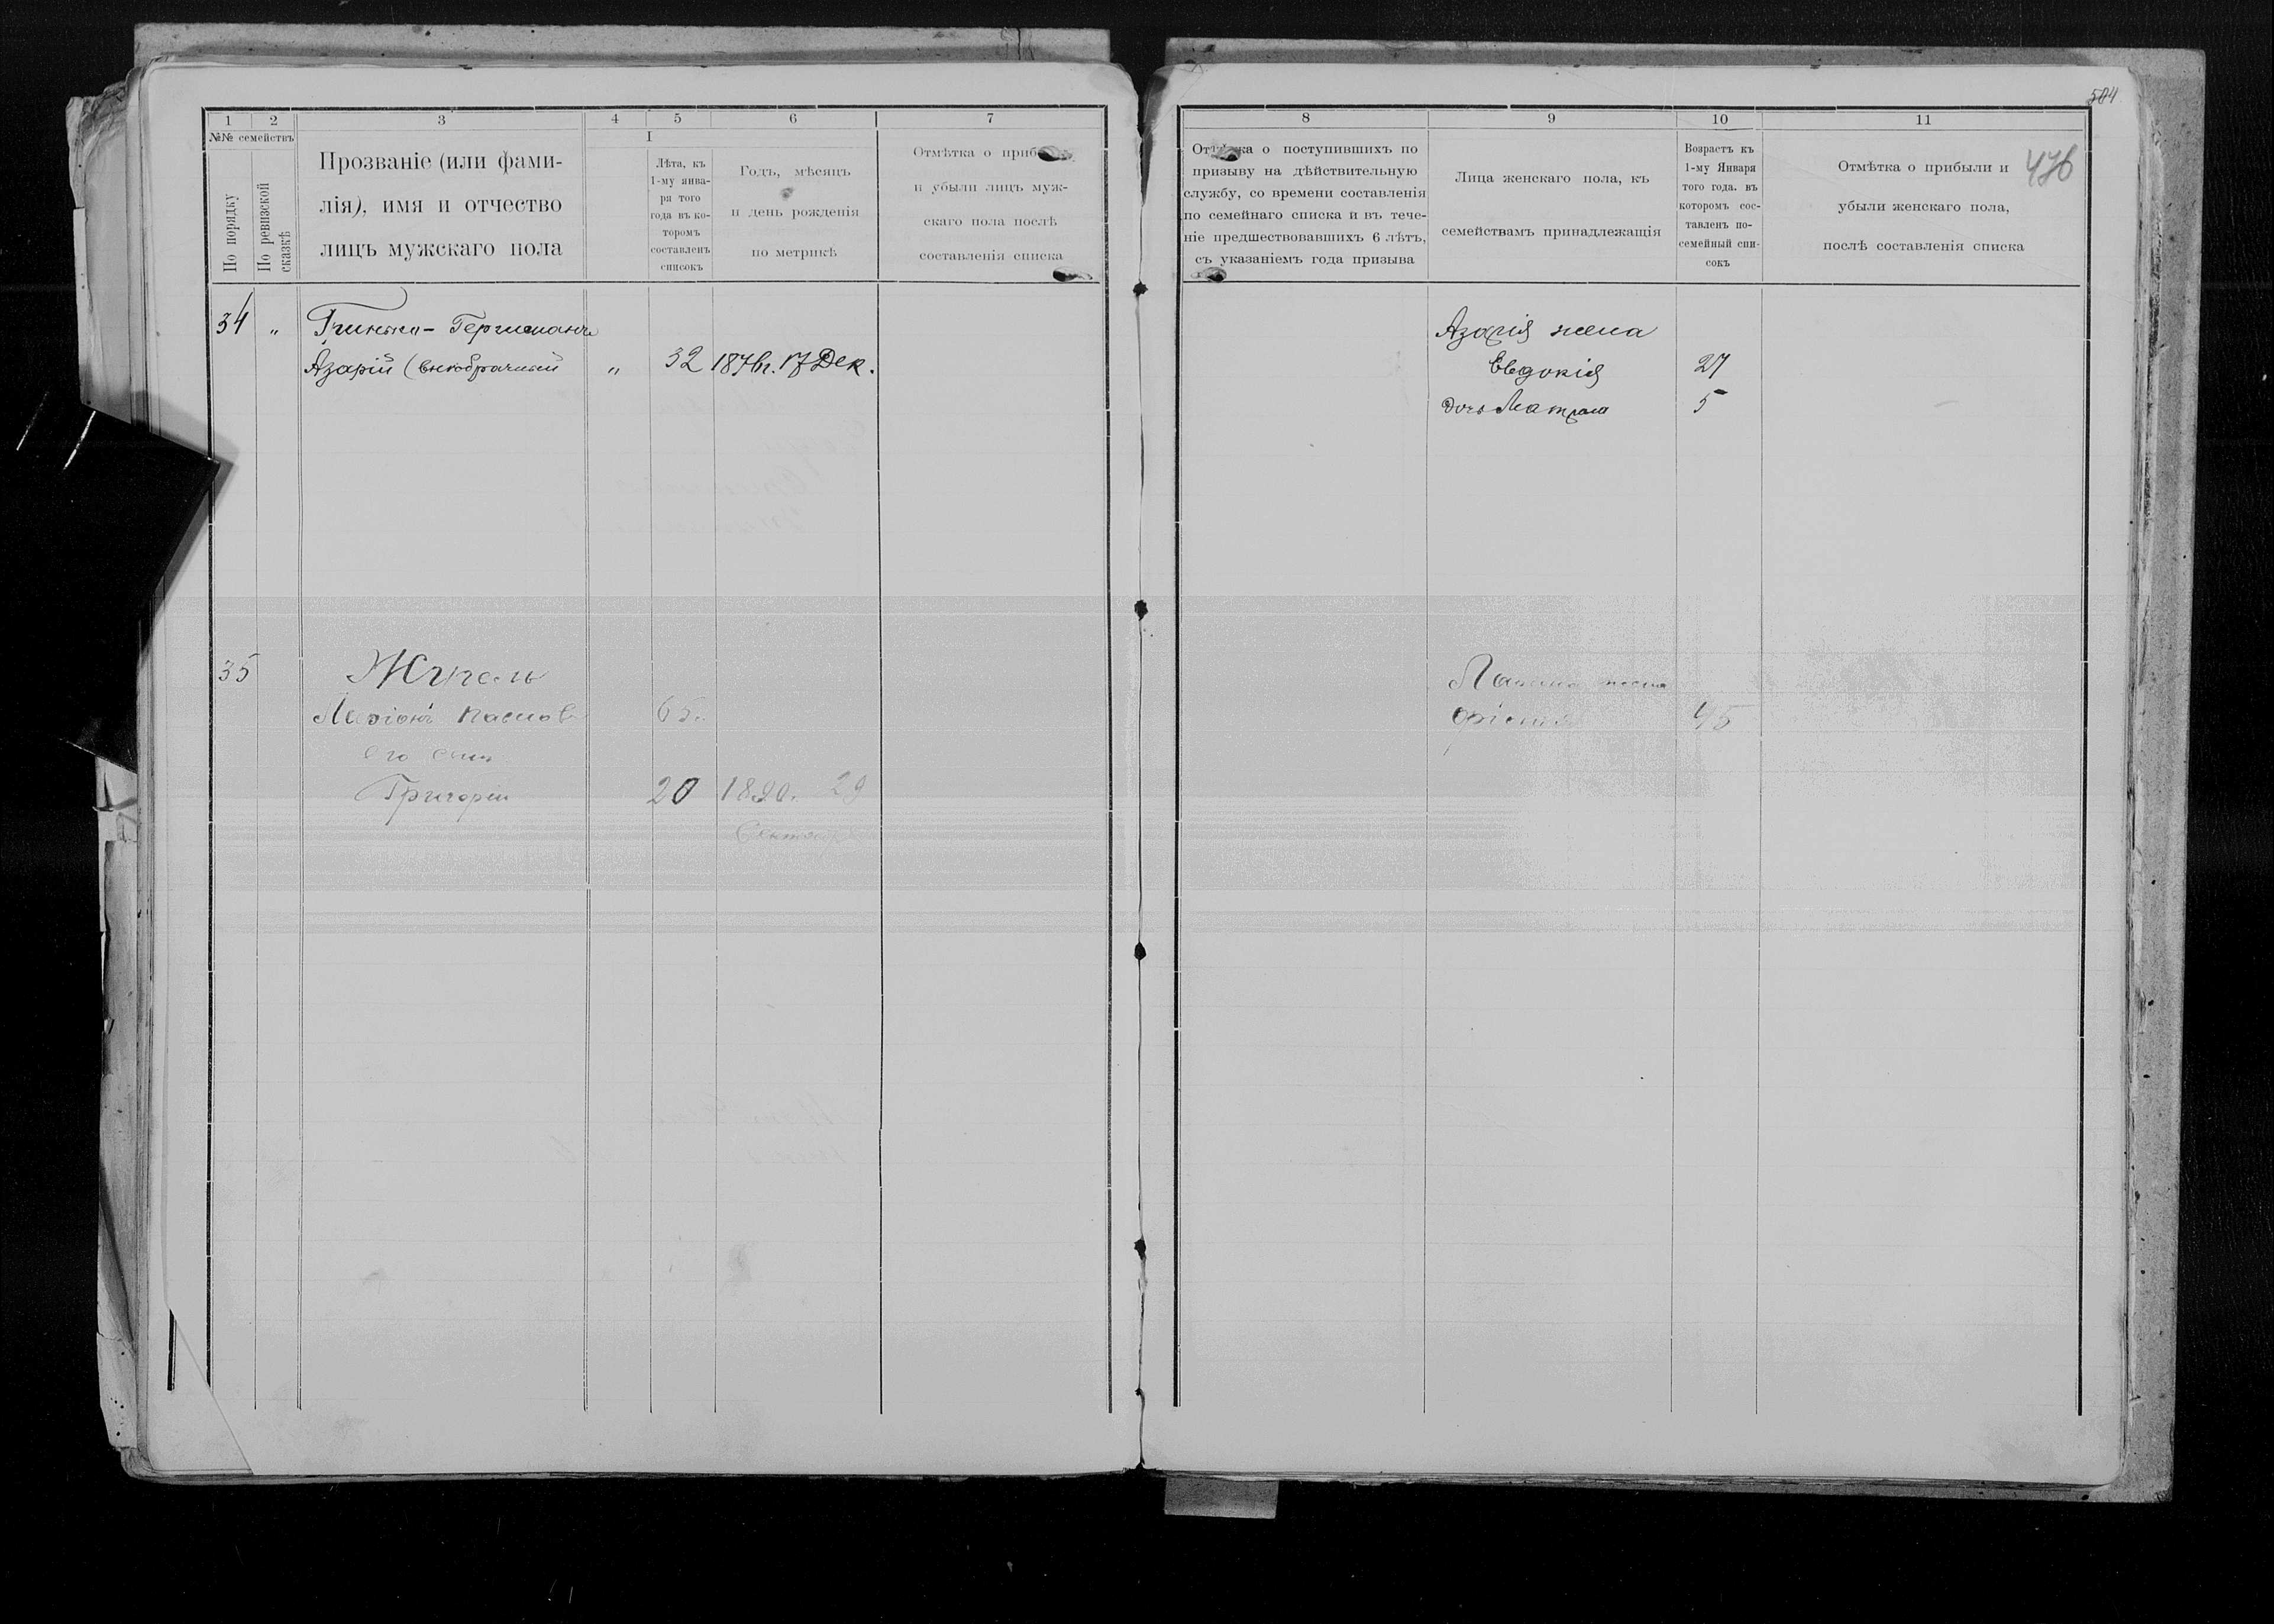 584
1
2
3
4
5
6
7
№№ семействъ
По порядку
По ревизской сказкѣ
Прозваніе (или фами-
лія), имя и отчество
лицъ мужскаго пола
I
Лѣта, къ
1-му янва-
ря того
года въ ко-
торомъ
составленъ
списокъ
Годъ, мѣсяцъ
и день рожденія
по метрикѣ
Отмѣтка о
и убыли лицъ муж-
скаго пола послѣ
составленія списка
34 „
Азарій (внѣбрачный „ 32 17 Дек.
35
65
его сын
Григорій 20 1890. 29
Сентяб
8
9
10
11
о поступившихъ по
призыву на дѣйствительную
службу, со времени составленія
по семейнаго списка и въ тече-
ніе предшествовавшихъ 6 лѣтъ,
съ указаніемъ года призыва
Лица женскаго пола, къ
семействамъ принадлежащія
Возрастъ къ
1-му Января
того года. въ
которомъ сос-
тавленъ по-
семейный спи-
сокъ
Отмѣтка о прибыли и
убыли женскаго пола,
послѣ составленія списка
476
Азарія жена
Евдокія 27
дочь 5
45